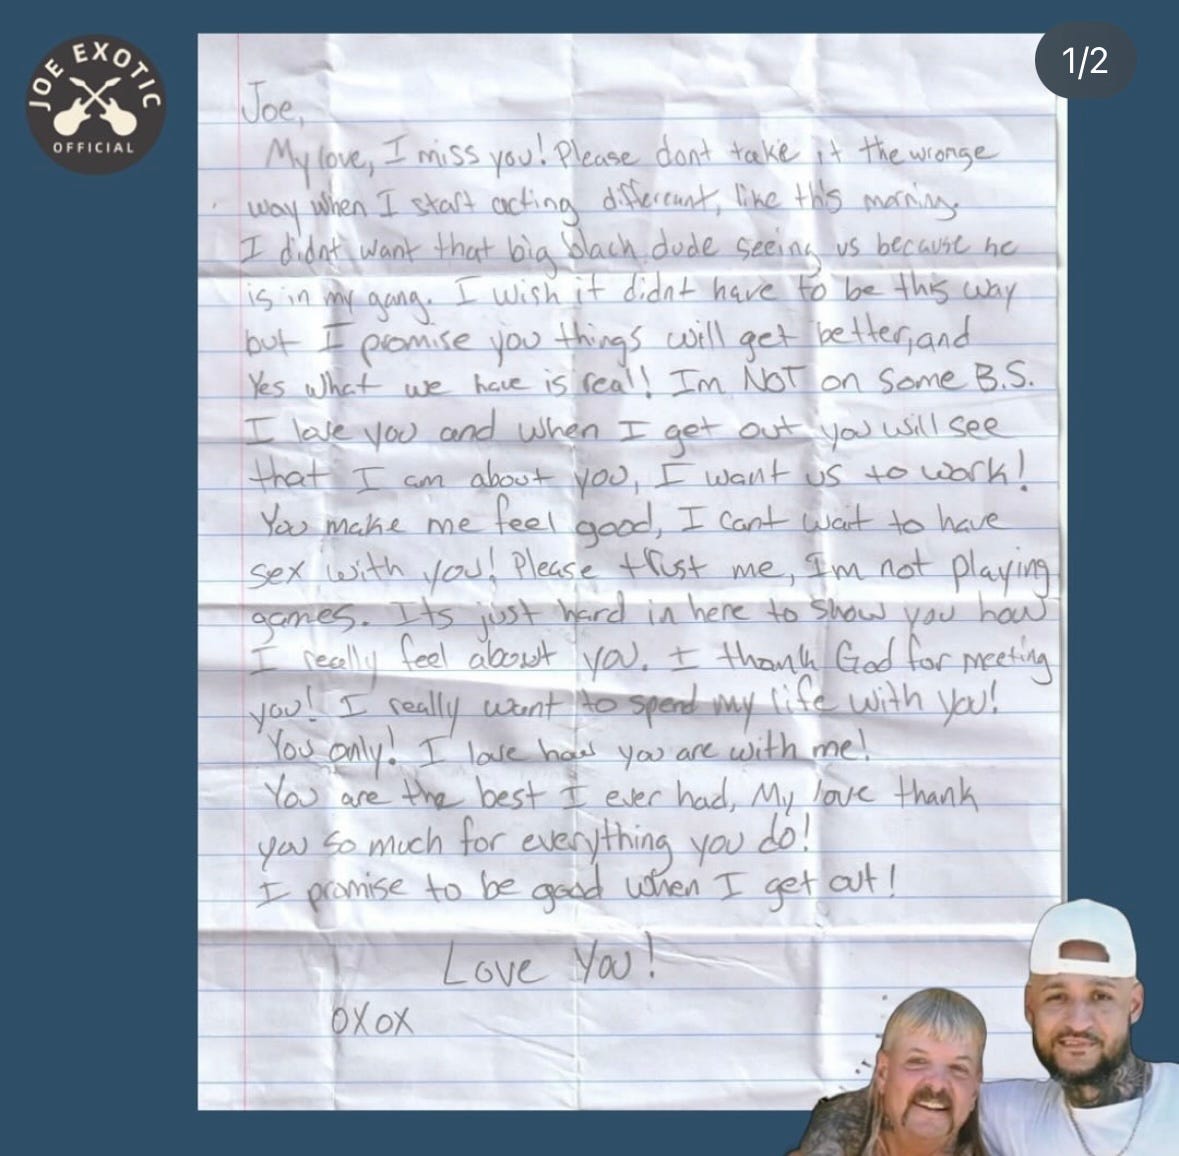 JOE EXOTIC
OFFICIAL
1/2
Joe,
My love, I miss you! Please dont take it the wronge
way when I start acting differeunt, like this morning.
I didnt want that big black dude seeing us because he
is in my gang. I wish it didnt have to be this way
but I promise you things will get better, and
Yes what we have is real! Im NOT on some B.S.
I love you and when I get out you will see
that I am about you, I want us to work!
You make me feel good, I cant wait to have
sex with you! Please trust me, Im not playing
games. Its just hard in here to show you how
I really feel about you. I thank God for meeting
you! I really want to spend my life with you!
You only! I love how you are with me!
You are the best I ever had, My love thank
you so much for everything you do!
I promise to be good when I get out!
Love You!
OXOX